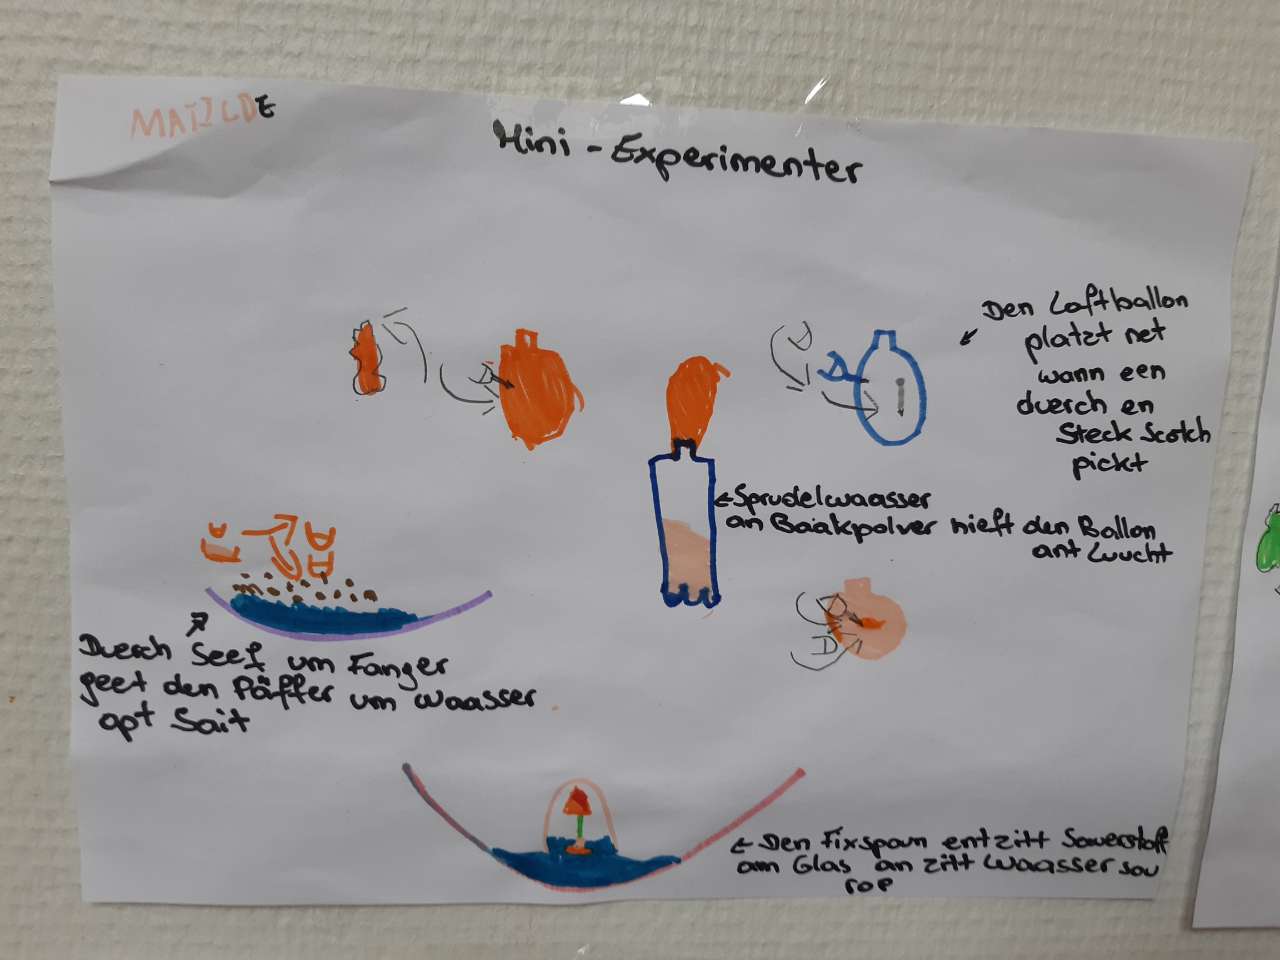 MATILDE
Mini - Experimenter
Den Loftballon
platzt net
wann een
duerch en
Steck Scotch
pickt
Sprudelwaasser
an Baakpolver hieft den Ballon
ant Luucht
Duerch Seef um Fanger
geet den Päffer um Waasser
opt Sait
Den Fixspoun entzitt Sauerstoff
am Glas an zitt Waasser sou
rop